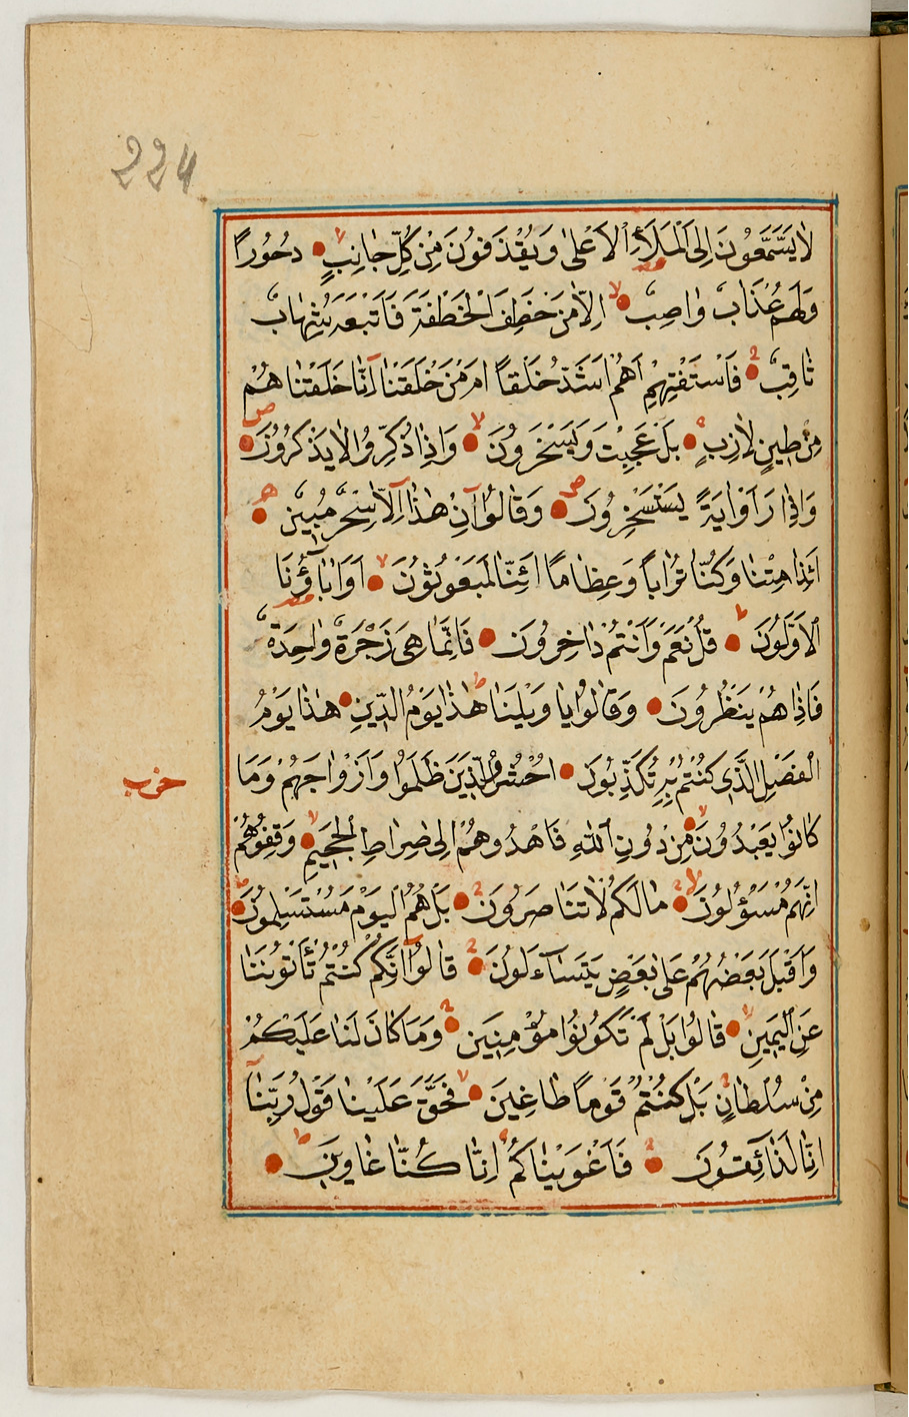 224
لَا يَسَّمَّعُونَ اِلَى الْمَلَأِ الْاَعْلٰى وَيُقْذَفُونَ مِنْ كُلِّ جَانِبٍ دُحُورًا
وَلَهُمْ عَذَابٌ وَاصِبٌ اِلَّا مَنْ خَطِفَ الْخَطْفَةَ فَاَتْبَعَهُ شِهَابٌ
ثَاقِبٌ فَاسْتَفْتِهِمْ اَهُمْ اَشَدُّ خَلْقًا اَمْ مَنْ خَلَقْنَا اِنَّا خَلَقْنَاهُمْ
مِنْ طِينٍ لَازِبٍ بَلْ عَجِبْتَ وَيَسْخَرُونَ وَاِذَا ذُكِّرُوا لَا يَذْكُرُونَ
وَاِذَا رَاَوْا اٰيَةً يَسْتَسْخِرُونَ وَقَالُوا اِنْ هٰذَا اِلَّا سِحْرٌ مُبِينٌ
ءَاِذَا مِتْنَا وَكُنَّا تُرَابًا وَعِظَامًا ءَاِنَّا لَمَبْعُوثُونَ اَوَاٰبَاؤُنَا
الْاَوَّلُونَ قُلْ نَعَمْ وَاَنْتُمْ دَاخِرُونَ فَاِنَّمَا هِيَ زَجْرَةٌ وَاحِدَةٌ
فَاِذَا هُمْ يَنْظُرُونَ وَقَالُوا يَا وَيْلَنَا هٰذَا يَوْمُ الدِّينِ هٰذَا يَوْمُ
الْفَصْلِ الَّذِي كُنْتُمْ بِهِ تُكَذِّبُونَ اُحْشُرُوا الَّذِينَ ظَلَمُوا وَاَزْوَاجَهُمْ وَمَا
حزب
كَانُوا يَعْبُدُونَ مِنْ دُونِ اللّٰهِ فَاهْدُوهُمْ اِلٰى صِرَاطِ الْجَحِيمِ وَقِفُوهُمْ
اِنَّهُمْ مَسْؤُلُونَ مَا لَكُمْ لَا تَنَاصَرُونَ بَلْ هُمُ الْيَوْمَ مُسْتَسْلِمُونَ
وَاَقْبَلَ بَعْضُهُمْ عَلٰى بَعْضٍ يَتَسَاءَلُونَ قَالُوا اِنَّكُمْ كُنْتُمْ تَأْتُونَنَا
عَنِ الْيَمِينِ قَالُوا بَلْ لَمْ تَكُونُوا مُؤْمِنِينَ وَمَا كَانَ لَنَا عَلَيْكُمْ
مِنْ سُلْطَانٍ بَلْ كُنْتُمْ قَوْمًا طَاغِينَ فَحَقَّ عَلَيْنَا قَوْلُ رَبِّنَا
اِنَّا لَذَائِقُونَ فَاَغْوَيْنَاكُمْ اِنَّا كُنَّا غَاوِينَ